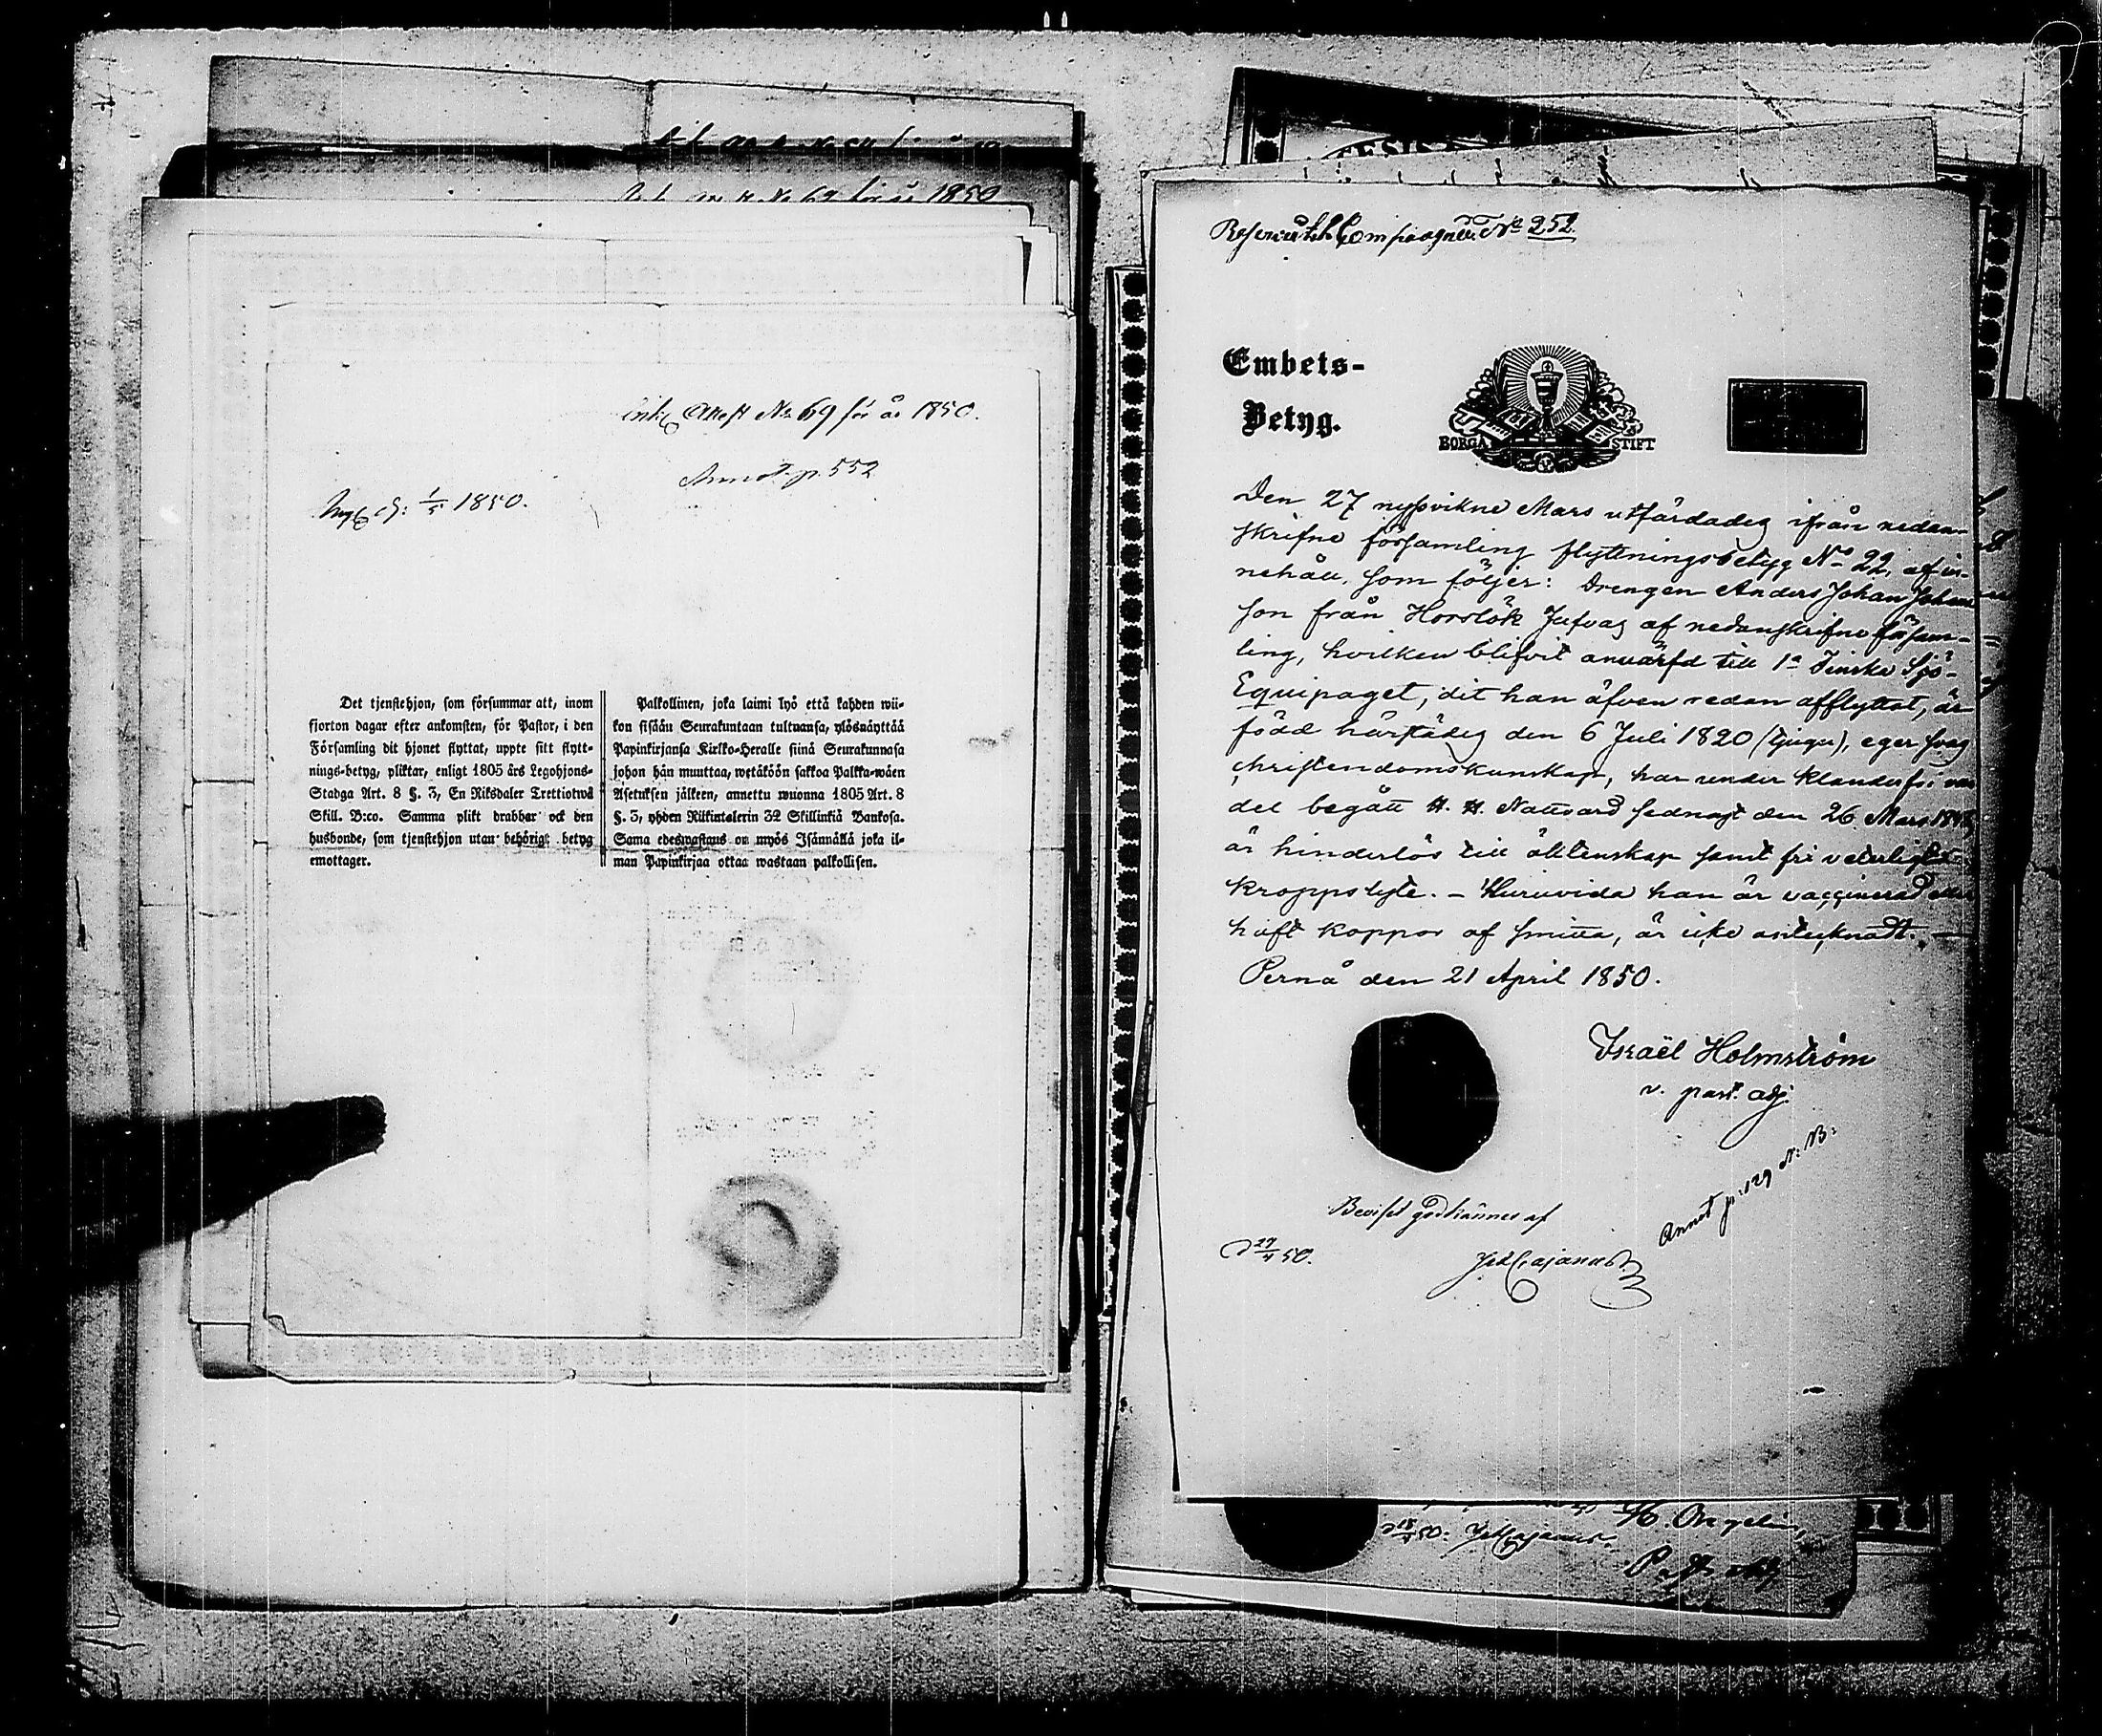 1850
Ink. Attest No 69 för år 1850.
Annot. p. 552
1/5 1850.
Det tjenstehjon, som försummar att, inom
fjorton dagar efter ankomsten, för Pastor, i den
Församling dit hjonet flyttat, uppte sitt flytt-
nings-betyg, pliktar, enligt 1805 års Legohjons-
Stadga Art. 8 §. 3, En Riksdaler Trettiotwå
Skill. B:co. Samma plikt drabbar ock den
husbonde, som tjenstehjon utan behörigt betyg
emottager.
Palkollinen, joka laimi lyö että kahden wii-
kon sisään Seurakuntaan tultuansa, ylösnäyttää
Papinkirjansa Kirkko-Heralle siinä Seurakunnasa
johon hän muuttaa, wetäköön sakkoa Palkka-wäen
Asetuksen jälkeen, annettu wuonna 1805 Art. 8
§. 3, yhden Riikintalerin 32 Skillinkiä Bankosa.
Sama edeswastaus on myös Isännällä joka il-
man Papinkirjaa ottaa wastaan palkollisen.
Compagnie No 252
Embets-
Betyg.
BORGÅ STIFT
Den 27 nyssvikne Mars utfärdades ifrån nedan-
skrifne församling flyttningsbetyg No 22, af in-
nehåll, som följer: Drengen Anders Johan Johans
son från Horslök af nedanskrifne försam-
ling, hvilken blifvit anvärfd till 1a Finska Sjö-
Equipaget, dit han äfven redan afflyttat, är
född härstädes den 6 Juli 1820 (tjugu), eger svag
christendomskunskap, har under
del begått H. H. Nattvard sednast den 26 Mars
är hinderlös till äktenskap samt fri
kroppslyte. – Huruvida han är vaccinerad eller
haft koppor af smitta, är icke antecknadt. –
Pernå den 21 April 1850.
Israël Holmström
v. past. adj.
Annot p: 129 N. B:
Beviset godkännes af
d 27/4 50.
Cajanus